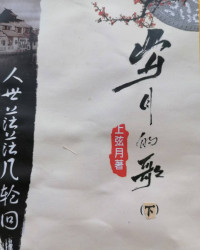 岁月的歌
(下)
上弦月著
人世茫茫几轮回